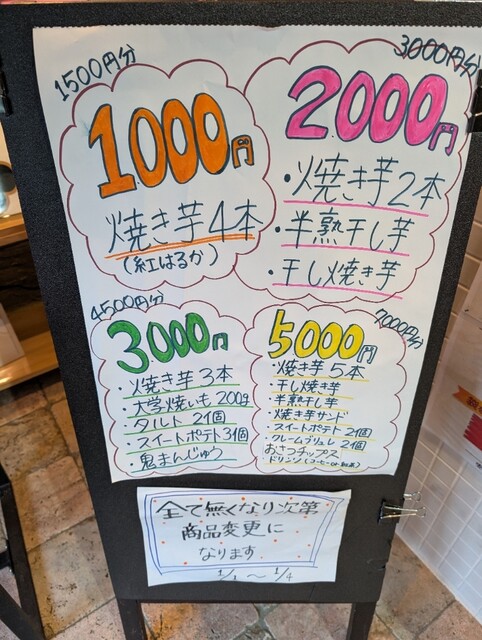 1500円分
1000円
焼き芋4本
(紅はるか)
3,000円分
2.000円
・焼き芋2本
・半熟干し芋
・干し焼き芋
4500円分
3000円
・焼き芋3本
・大学焼いも200g
・タルト2個
・スイートポテト3個
・鬼まんじゅう
7000円分
5000円
・焼き芋5本
・干し焼き芋
・半熟干し芋
・焼き芋サンド
・スイートポテト2個
・クレームブリュレ2個
おさつチップス
ドリンク(コーヒーor紅茶)
全て無くなり次第
商品変更に
なります
1/1〜1/4